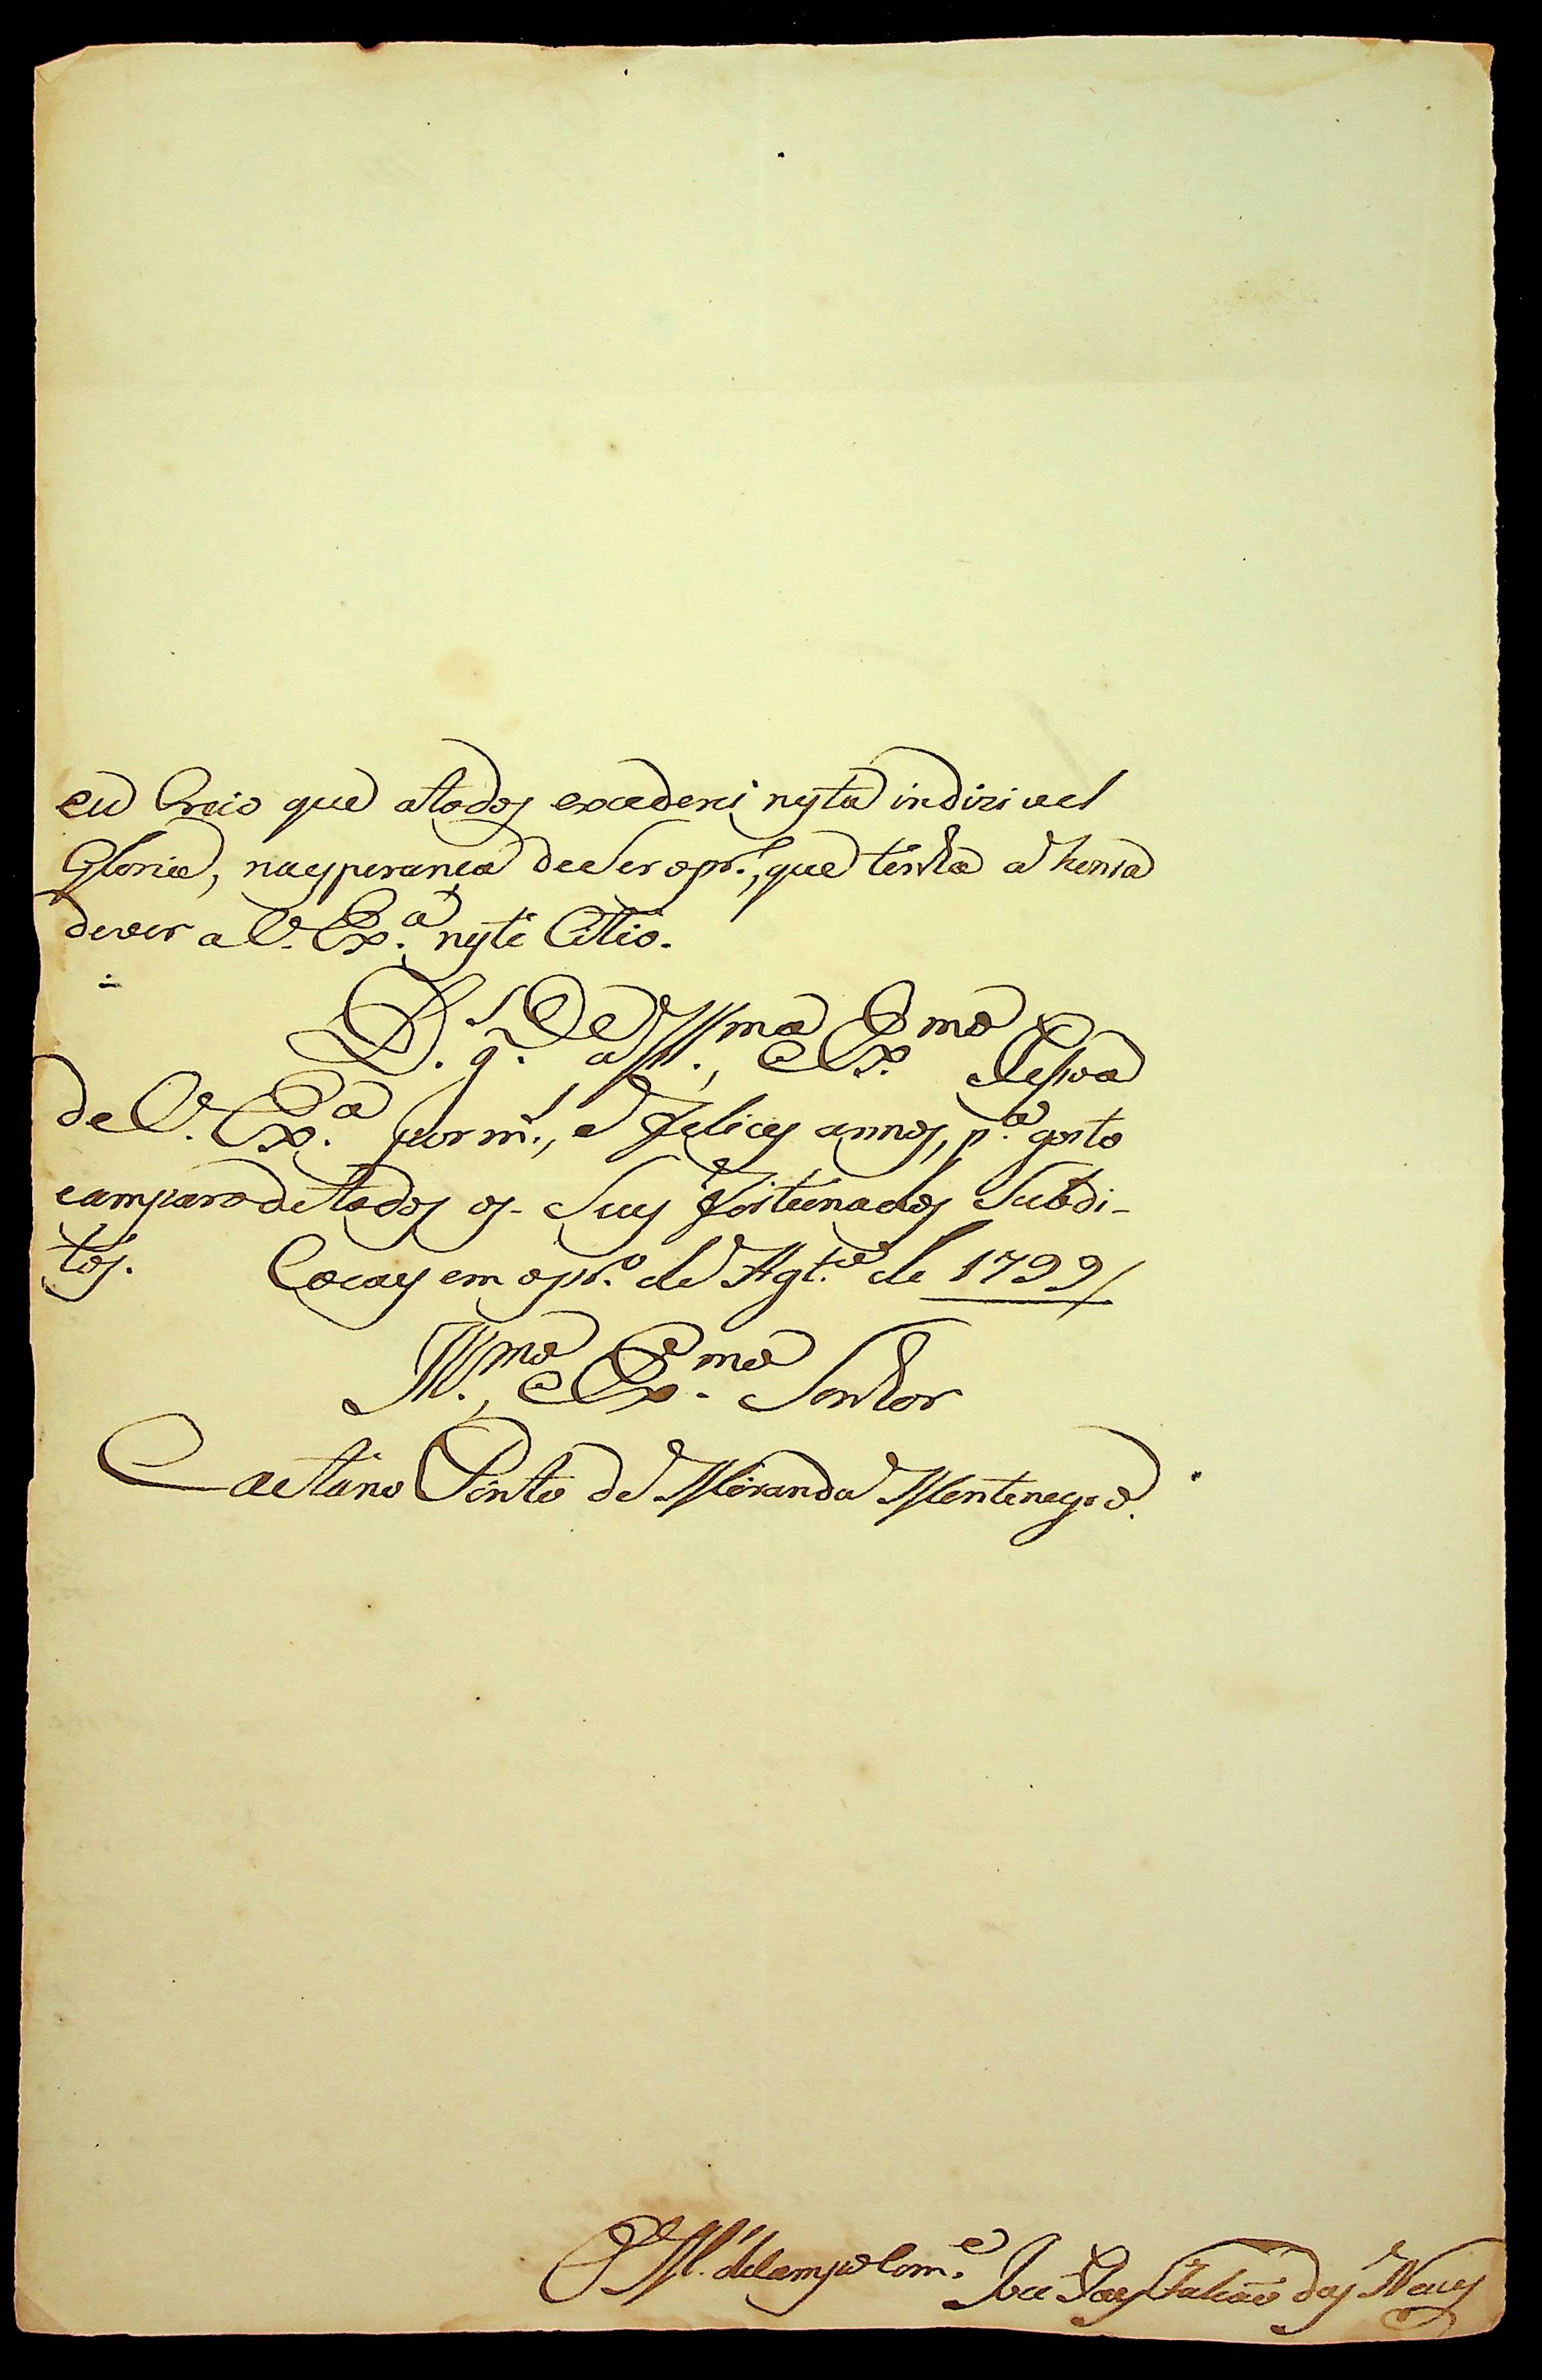 eu Creio que atodos excederei nesta indizivel
Gloria, naesperança deSer opr.º, que tenha a honra
dever a V. Ex.ª neste Citio.
D.s g.de a Ill.ma, e Ex.ma Pessoa
de V. Ex.ª por m.s, e felices annos, p.ª gosto
eamparo deTodos os Seus fortunados Subdi-
tos. Cocaes em opr.º de Agt.º de 1799/
Ill.mo, e Ex.mo Senhor
Caetano Pinto de Miranda Montenegro.
O M.e deCampo Com.e Joze Paes Falcaõ das Neves